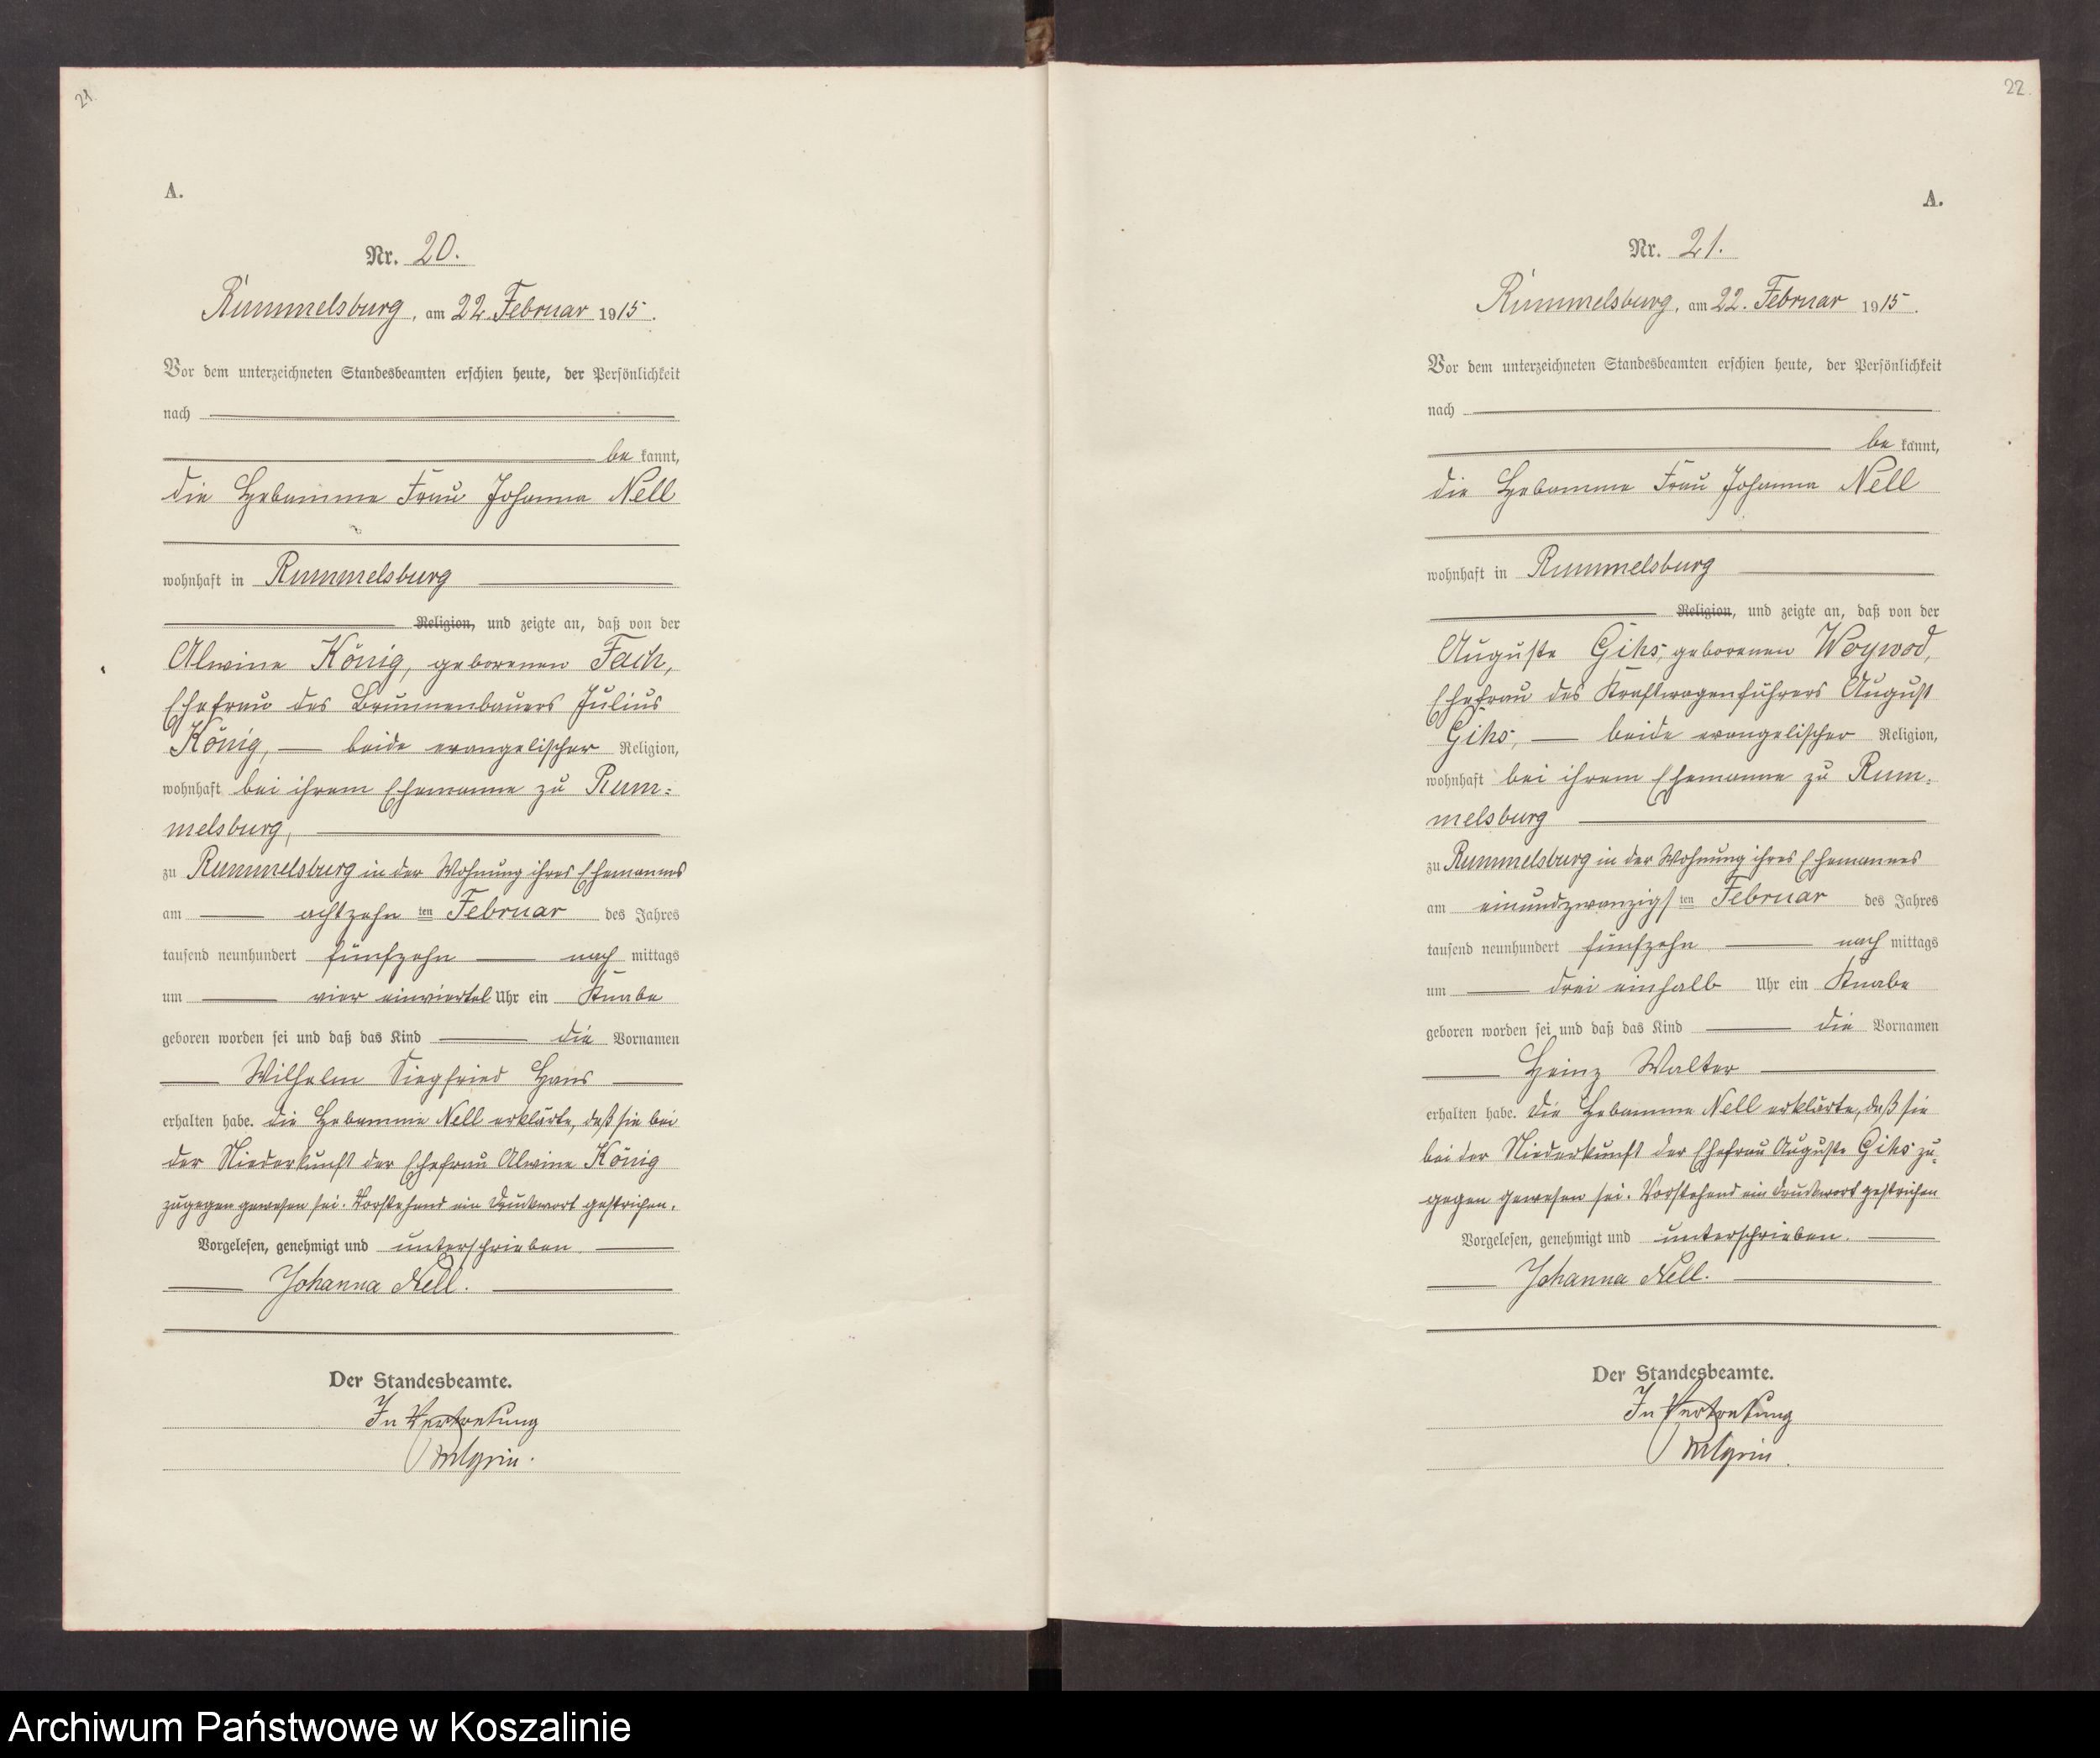 21.
A.
Nr. 20.
Rummelsburg, am 22. Februar 1915.
Vor dem unterzeichneten Standesbeamten erschien heute, der Persönlichkeit
nach
be kannt,
die Hebamme Frau Johanna Nell
wohnhaft in Rummelsburg
Religion, und zeigte an, daß von der
Alwine König, geborenen Fach,
Ehefrau des Brunnenbauers Julius
König, — beide evangelischer Religion,
wohnhaft bei ihrem Ehemanne zu Rum-
melsburg,
zu Rummelsburg in der Wohnung ihres Ehemannes
am — achtzehn ten Februar des Jahres
tausend neunhundert fünfzehn — nach mittags
um — vier einviertel Uhr ein Knabe
geboren worden sei und daß das Kind — die Vornamen
— Wilhelm Siegfried Hans —
erhalten habe. Die Hebamme Nell erklärte, daß sie bei
der Niederkunft der Ehefrau Alwine König
zugegen gewesen sei. Vorstehend ein Druckwort gestrichen.
Vorgelesen, genehmigt und unterschrieben. —
— Johanna Nell. —
Der Standesbeamte.
In Vertretung
22.
A.
Nr. 21.
Rummelsburg, am 22. Februar 1915.
Vor dem unterzeichneten Standesbeamten erschien heute, der Persönlichkeit
nach
be kannt,
die Hebamme Frau Johanna Nell
wohnhaft in Rummelsburg
Religion, und zeigte an, daß von der
Auguste Gihs, geborenen Woywod,
Ehefrau des Kraftwagenführers August
Gihs, — beide evangelischer Religion,
wohnhaft bei ihrem Ehemanne zu Rum-
melsburg
zu Rummelsburg in der Wohnung ihres Ehemannes
am einundzwanzigs ten Februar des Jahres
tausend neunhundert fünfzehn — nach mittags
um — drei einhalb Uhr ein Knabe
geboren worden sei und daß das Kind — die Vornamen
— Heinz Walter —
erhalten habe. Die Hebamme Nell erklärte, daß sie
bei der Niederkunft der Ehefrau Auguste Gihs zu-
gegen gewesen sei. Vorstehend ein Druckwort gestrichen
Vorgelesen, genehmigt und unterschrieben. —
— Johanna Nell. —
Der Standesbeamte.
In Vertretung
Archiwum Państwowe w Koszalinie